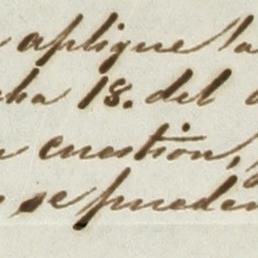 aplique la
cha 18. del
cuestion,
se pueden